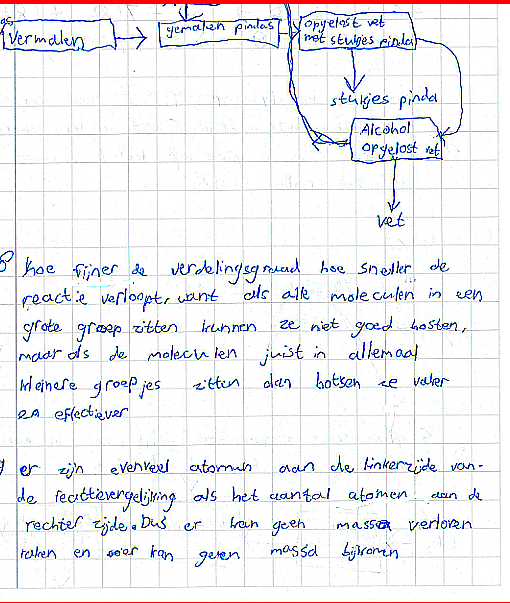 gs
Vermalen
gemalen pindas
opgelost vet
met stukjes pinda
stukjes pinda
Alcohol
opgelost vet
vet
8 hoe fijner de verdelingsgraad hoe sneller de
reactie verloopt, want als alle moleculen in een
grote groep zitten kunnen ze niet goed botsen,
maar als de moleculen juist in allemaal
kleinere groepjes zitten dan botsen ze vaker
en effectiever
er zijn evenveel atomen aan de linkerzijde van
de reactievergelijking als het aantal atomen aan de
rechter zijde. Dus er kan geen massa verloren
raken en er kan geen massa bijkomen